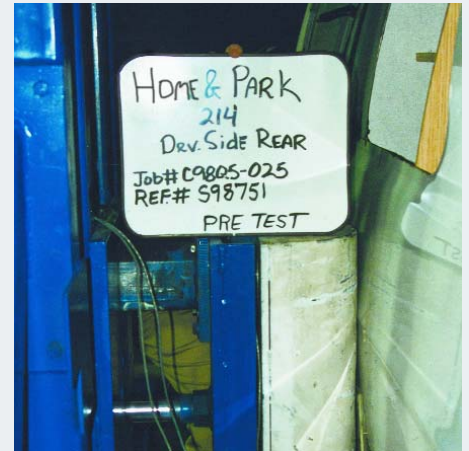 HOME & PARK
214
DRV. SIDE REAR
Job# C98Q5-025
REF.# S98751
PRE TEST